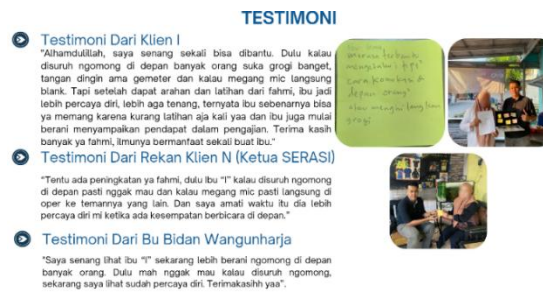 TESTIMONI
Testimoni Dari Klien I
"Alhamdulillah, saya senang sekali bisa dibantu. Dulu kalau
disuruh ngomong di depan banyak orang suka grogi banget,
tangan dingin ama gemeter dan kalau megang mic langsung
blank. Tapi setelah dapat arahan dan latihan dari fahmi, ibu jadi
lebih percaya diri, lebih aga tenang, ternyata ibu sebenarnya bisa
ya memang karena kurang latihan aja kali yaa dan ibu juga mulai
berani menyampaikan pendapat dalam pengajian. Terima kasih
banyak ya fahmi, ilmunya bermanfaat sekali buat ibu."
Testimoni Dari Rekan Klien N (Ketua SERASI)
"Tentu ada peningkatan ya fahmi, dulu Ibu "I" kalau disuruh ngomong
di depan pasti nggak mau dan kalau megang mic pasti langsung di
oper ke temannya yang lain. Dan saya amati waktu itu dia lebih
percaya diri mi ketika ada kesempatan berbicara di depan."
Testimoni Dari Bu Bidan Wangunharja
"Saya senang lihat ibu "I" sekarang lebih berani ngomong di depan
banyak orang. Dulu mah nggak mau kalau disuruh ngomong,
sekarang saya lihat sudah percaya diri. Terimakasihh yaa".
depan orang"
grogi